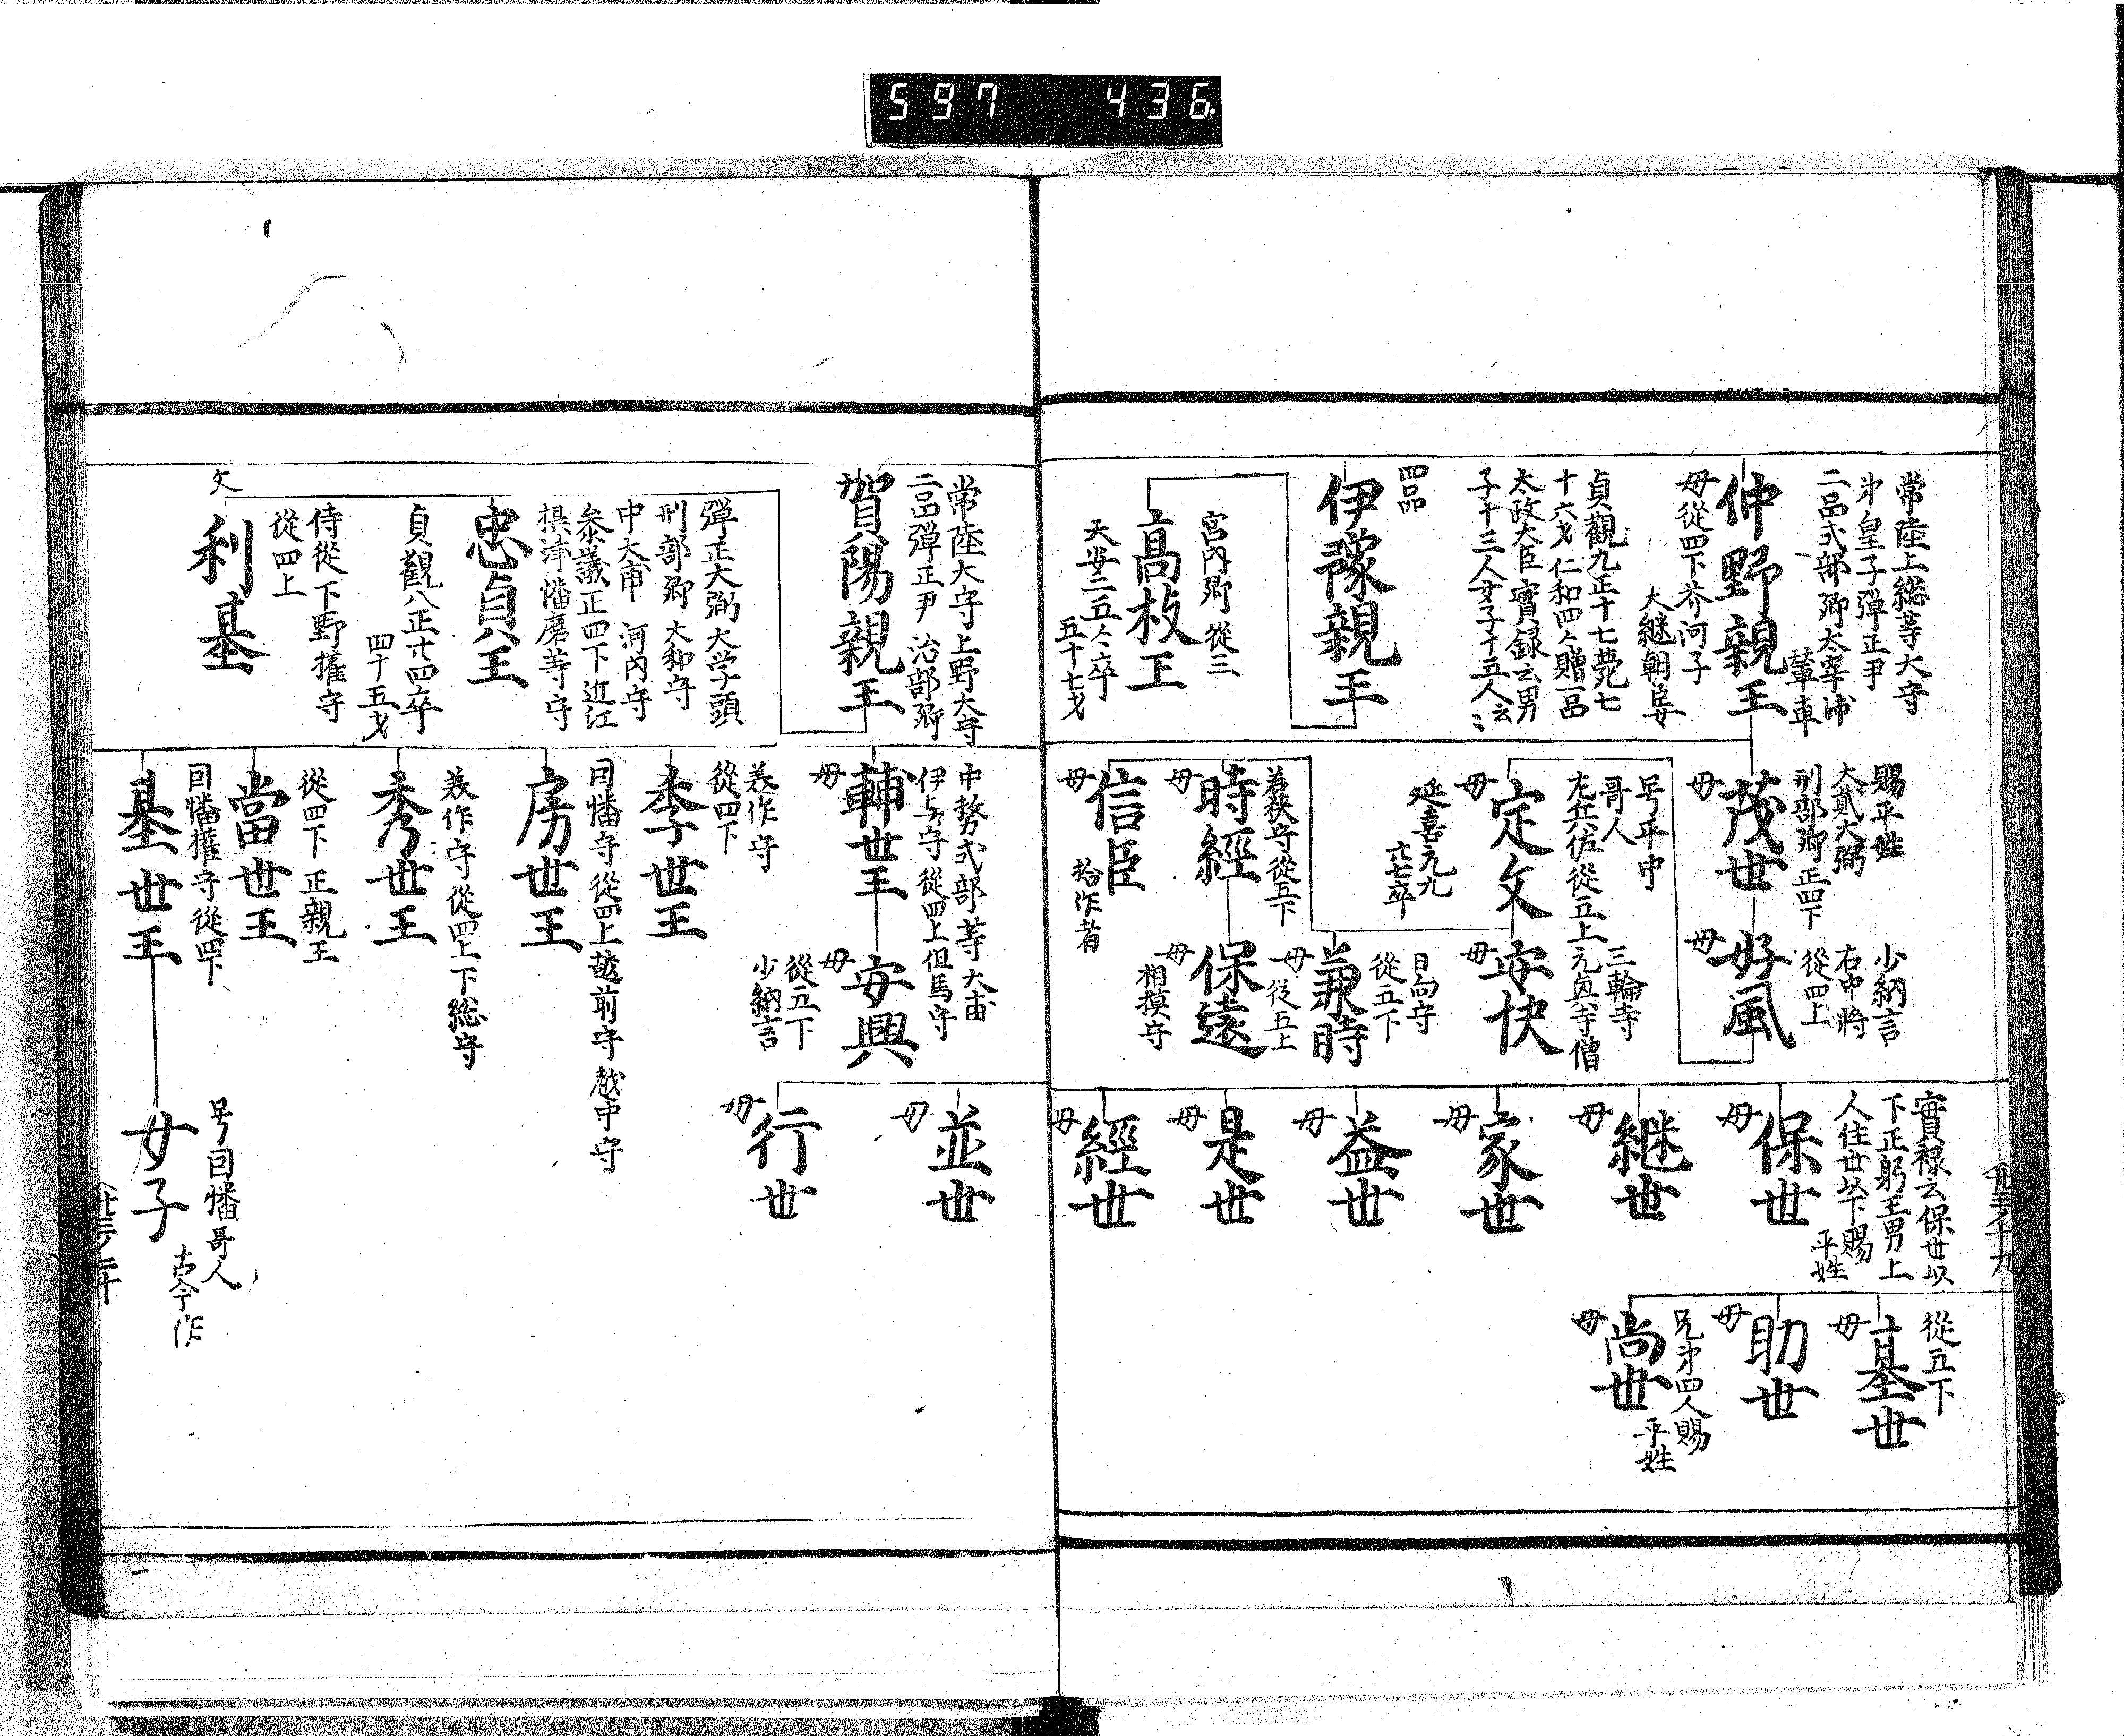 597 436
常陸上総等大守
㐧皇子弾正尹
二品式部卿太宰帥
輦車
仲野親王
母従四下芥河子
大継朝臣女
貞觀九正十七薨七
十六才仁和四〻贈一品
太政大臣實録云男
子十三人女子十五人云〻
四品
伊豫親王
宮内卿 従三
高枝王
天安二五〻卒
五十七才
賜平姓
大貳大弼
刑部卿正四下
茂世
母
少納言
右中将
従四上
好風
母
号平中
哥人
左兵佐従五上
定文
母
延喜元九
廿七卒
三輪寺
元興寺僧
安快
母
日向守
従五下
兼時
母
若狭守従五下
時經
母
従五上
保遠
母
相摸守
信臣
母
拾作者
實禄云保世以
下正躬王男上
人住世以下賜
平姓
保世
母
継世
母
家世
母
益世
母
是世
母
經世
母
従五下
基世
母
助世
母
兄㐧四人賜
平姓
尚世
母
常陸大守上野大守
二品弾正尹 治部卿
賀陽親王
弾正大弼大学頭
刑部卿 大和守
中大甫 河内守
参議正四下近江
摂津播磨等守
忠貞王
貞観八正廿四卒
四十五才
侍従下野權守
従四上
利基
文
中務式部等大甫
伊与守従四上但馬守
輔世王
母
安興
母
従五下
少納言
美作守
従四下
季世王
因幡守従四上越前守越中守
房世王
美作守従四上下総守
秀世王
従四下正親王
當世王
因幡權守従四下
基世王
並世
母
行世
母
号因幡哥人
女子
古今作